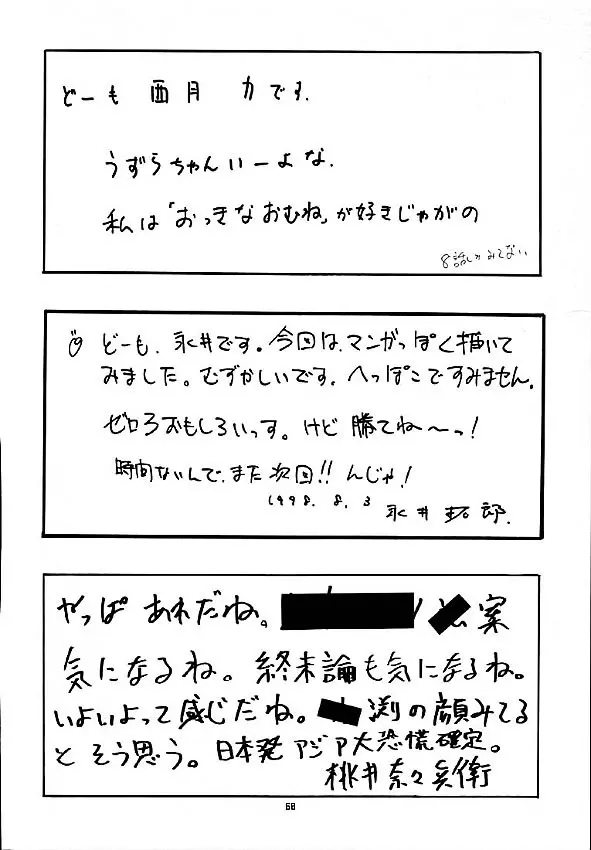 どーも 酉月 力です.
うずらちゃんいーよな.
私は「おっきなおむね」が好きじゃがの
8話しかみてない
どーも、永井です。今回は、マンガっぽく描いて
みました。むずかしいです。へっぽこですみません。
ゼロ3おもしろいっす。けど 勝てね〜っ!
時間ないんで、また次回!! んじゃ!
1998. 8. 3
永井 拓郎.
やっぱ あれだね。 案
気になるね。終末論も気になるね。
いよいよって感じだね。 渕の顔みてる
とそう思う。日本発アジア大恐慌確定。
桃井奈々兵衛
68